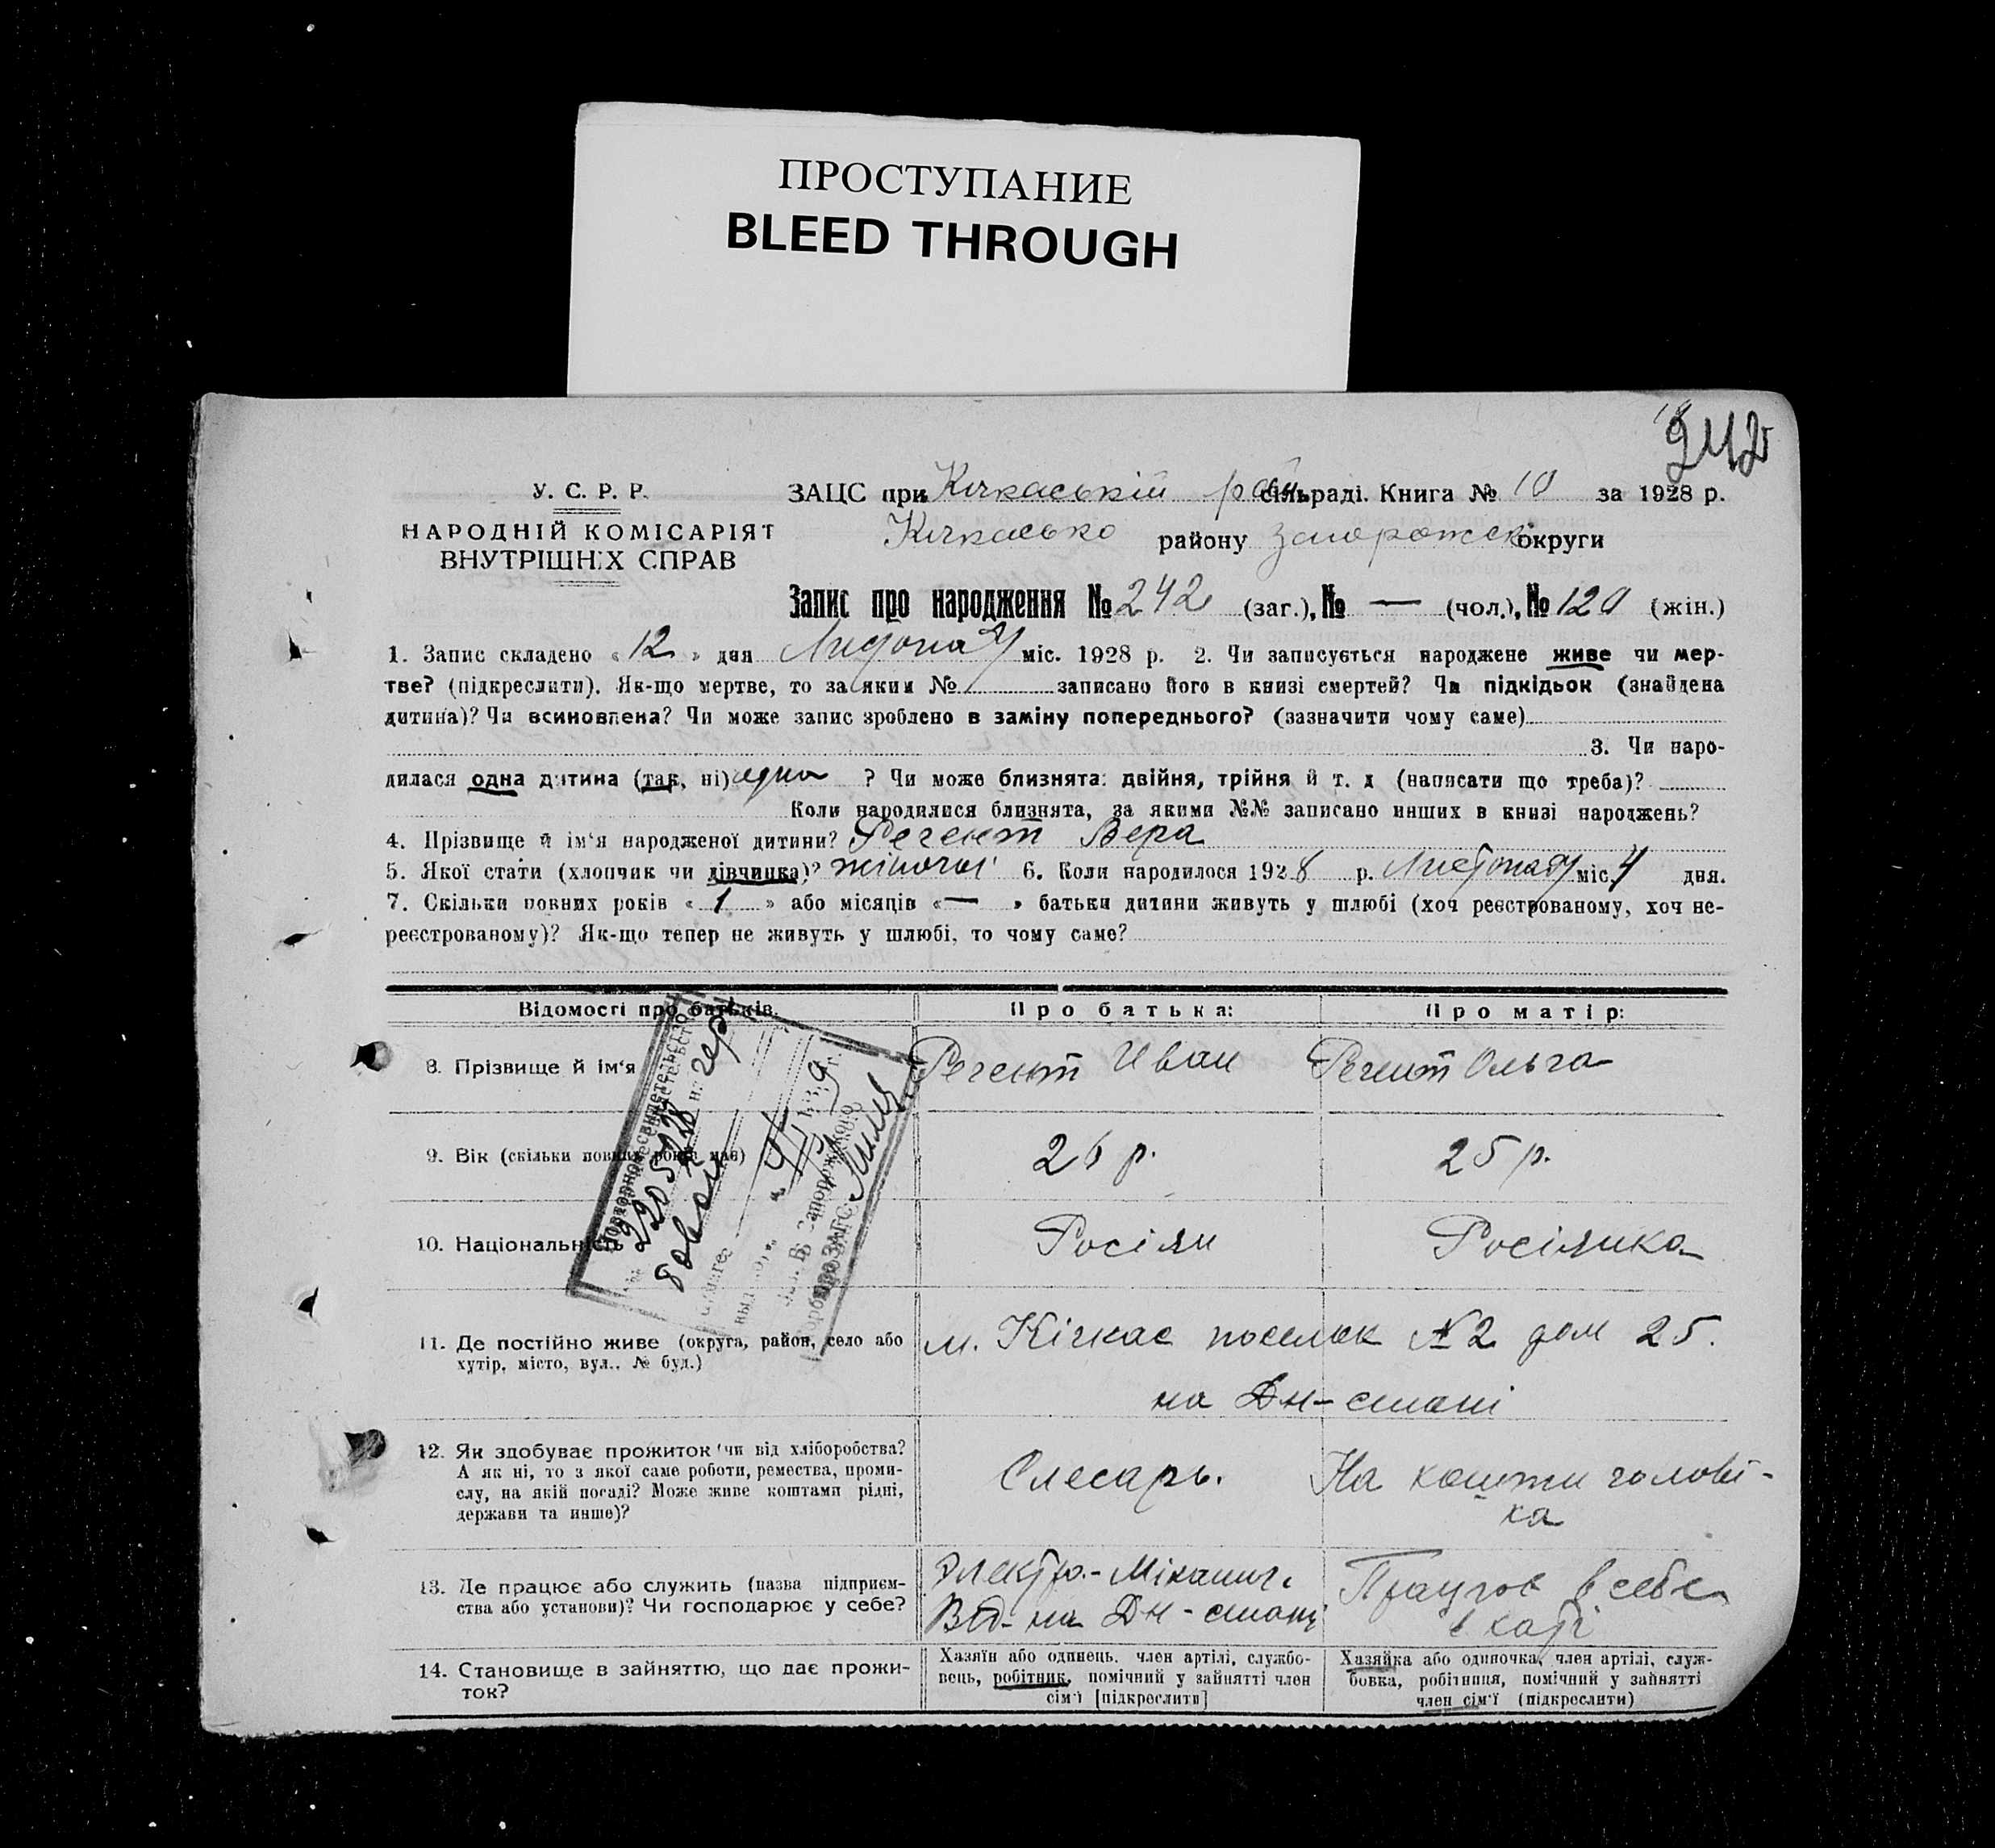 ПРОСТУПАНИЕ
BLEED THROUGH
242
У. С. Р. Р.
НАРОДНІЙ КОМІСАРІЯТ
ВНУТРІШНІХ СПРАВ
ЗАЦС при Кічкаській рай сільраді. Книга № 10 за 1928 р.
Кічкасько району Запорожськ округи
Запис про народження № 242 (заг.), № — (чол.), № 120 (жін.)
1. Запис складено « 12 » дня Листопаду міс. 1928 р. 2. Чи записується народжене живе чи мер-
тве? (підкреслити). Як-що мертве, то за яким № записано його в книзі смертей? Чи підкідьок (знайдена
дитина)? Чи всиновлена? Чи може запис зроблено в заміну попереднього? (зазначити чому саме)
3. Чи наро-
дилася одна дитина (так, ні) одна ? Чи може близнята: двійня, трійня й т. д (написати що треба)?
Коли народилися близнята, за якими №№ записано инших в книзі народжень?
4. Прізвище й ім'я народженої дитини? Регент Вера
5. Якої стати (хлопчик чи дівчинка)? жіночої 6. Коли народилося 1928 р. Листопаду міс. 4 дня.
7. Скільки повних років « 1 » або місяців « — » батьки дитини живуть у шлюбі (хоч реєстрованому, хоч не-
реєстрованому)? Як-що тепер не живуть у шлюбі, то чому саме?
Відомості про батьків.
Про батька:
Про матір:
8. Прізвище й ім'я
Регент Иван
Регент Ольга
9. Вік (скільки повних років має)
26 р.
25 р.
10. Національність
Росіян
Росіянка
11. Де постійно живе (округа, район, село або
хутір, місто, вул., № буд.)
м. Кічкас поселок №2 дом 25.
на Дн-стані
12. Як здобуває прожиток (чи від хліборобства?
А як ні, то з якої саме роботи, ремества, проми-
слу, на якій посаді? Може живе коштами рідні,
держави та инше)?
Слесарь.
На кошти чолові-
ка
13. Де працює або служить (назва підприєм-
ства або установи)? Чи господарює у себе?
Электро-Міханич.
Від- на Дн-стані
Працює в себе
в хаті
14. Становище в зайняттю, що дає прожи-
ток?
Хазяїн або одинець, член артілі, службо-
вець, робітник, помічний у зайнятті член
сім'ї [підкреслити]
Хазяйка або одиночка, член артілі, служ-
бовка, робітниця, помічний у зайнятті
член сім'ї (підкреслити)
Повторное свидетельство